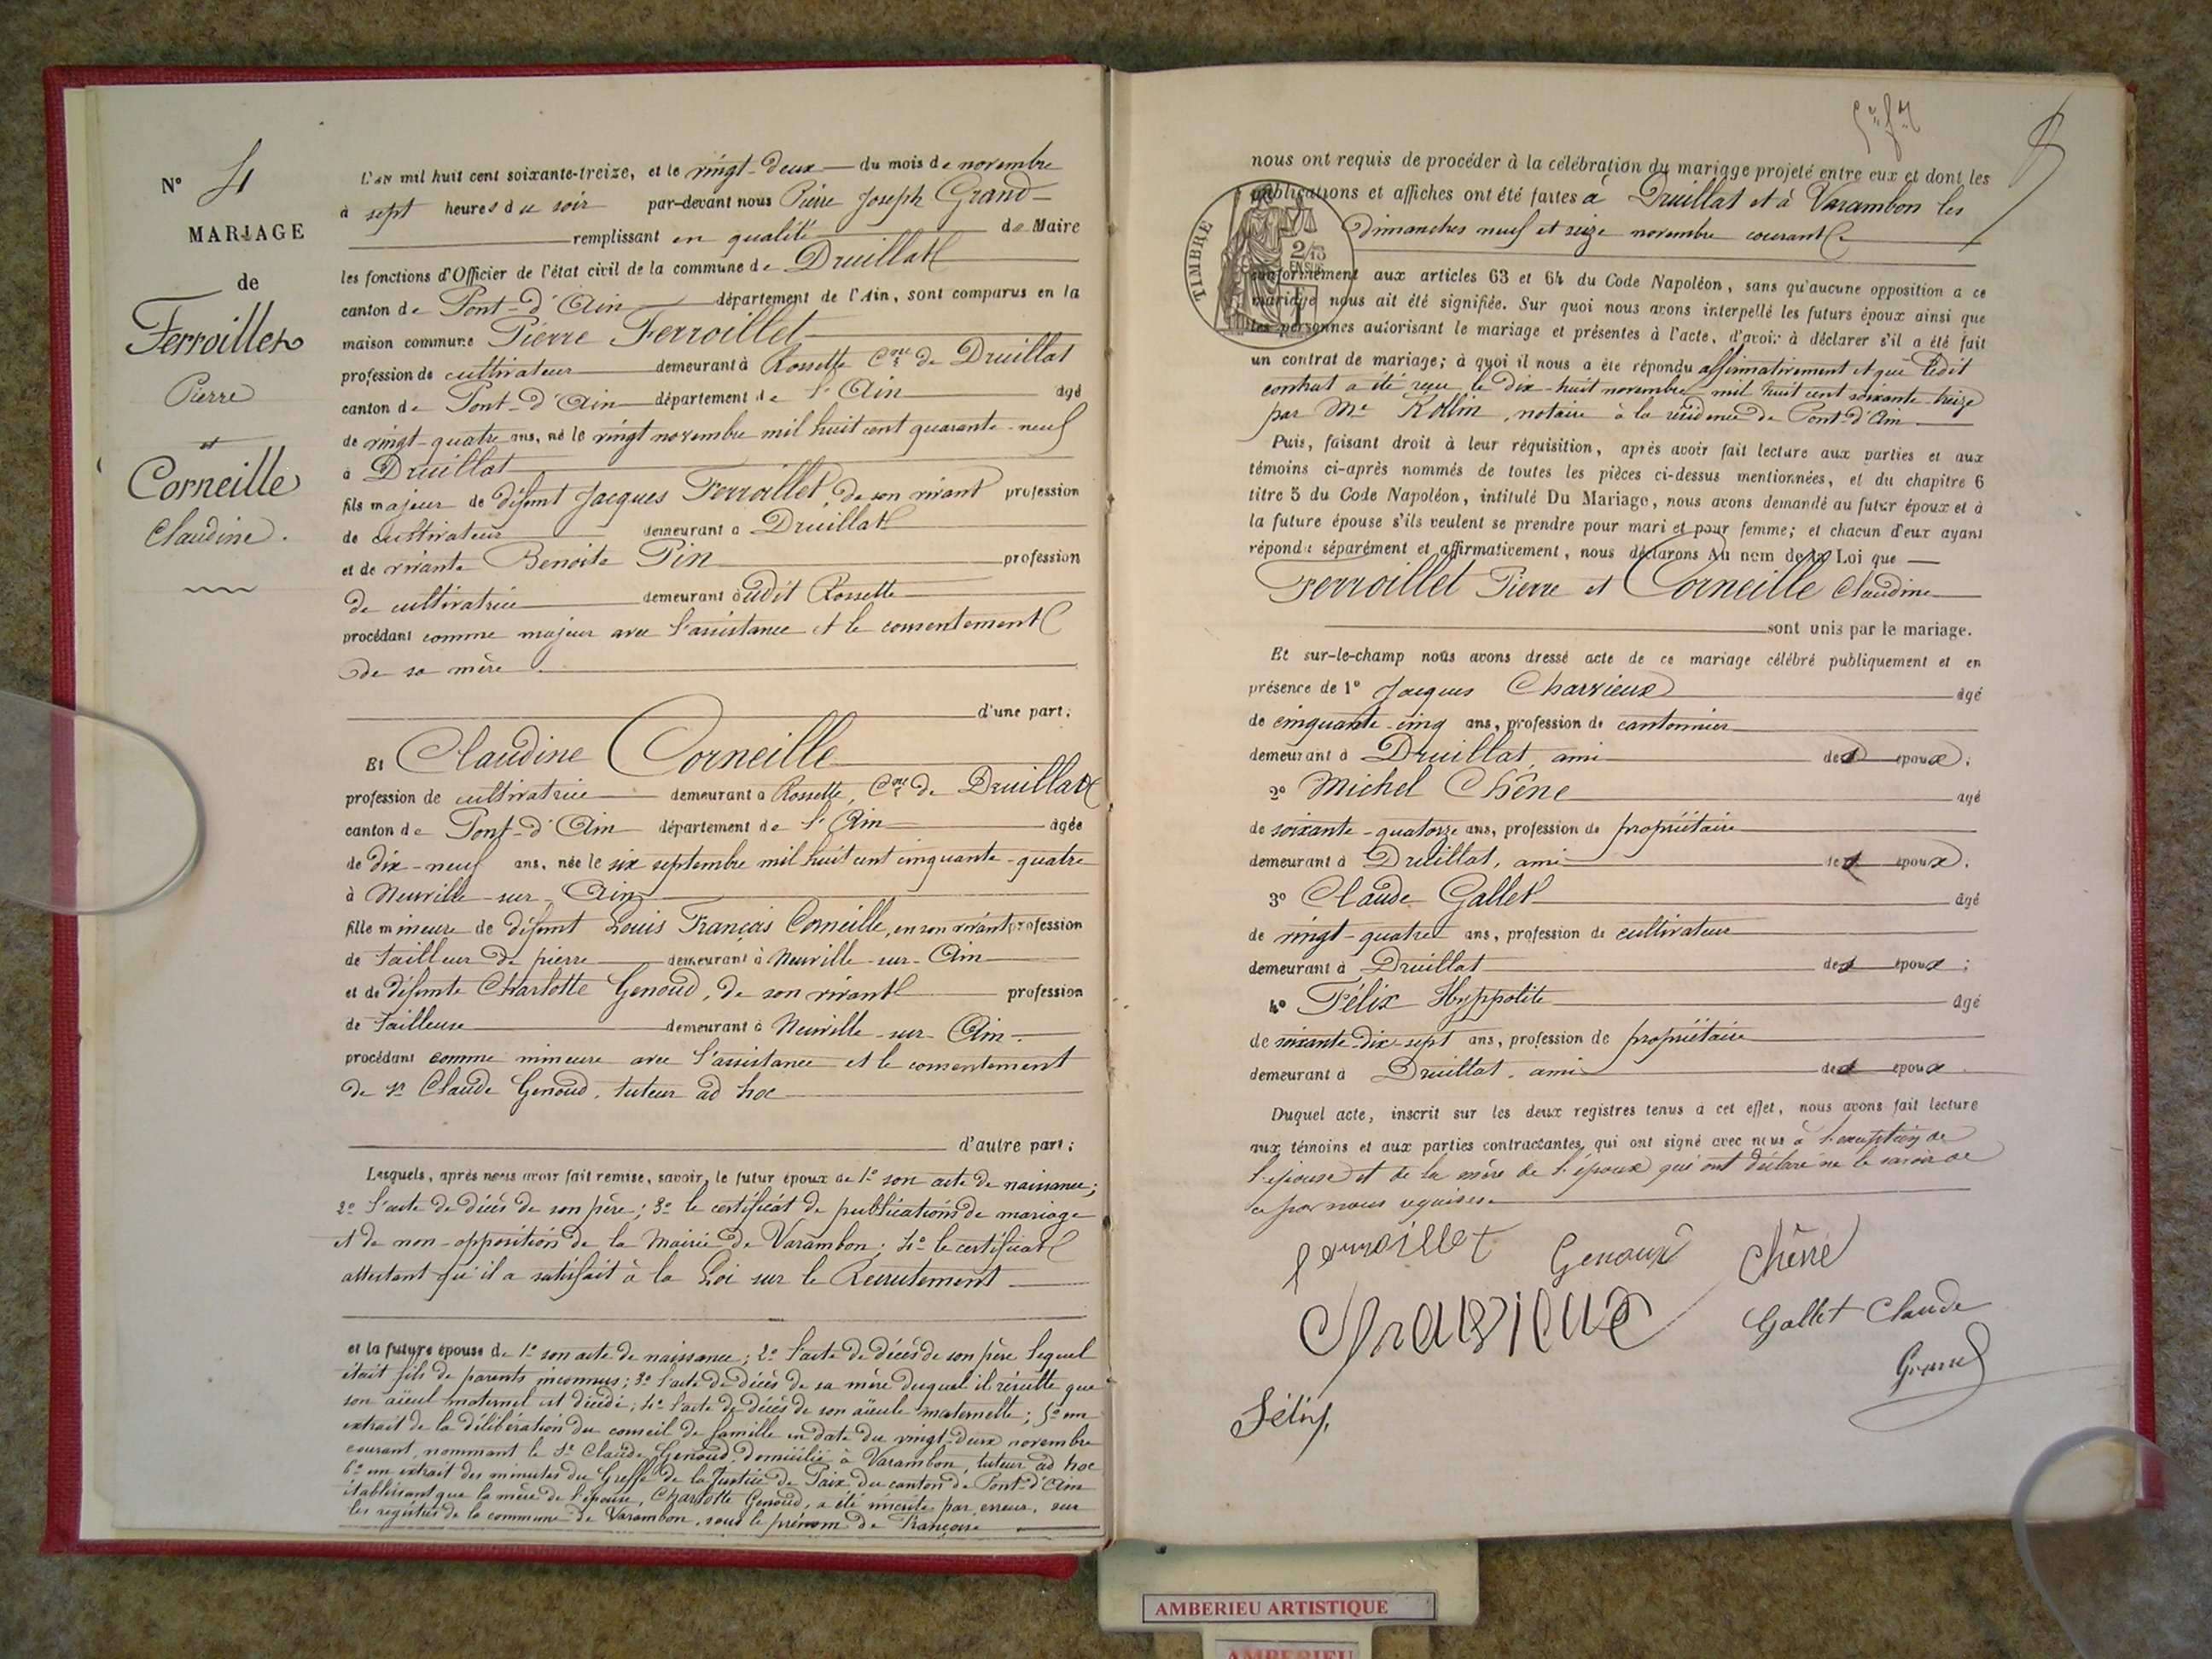 N° 4
MARIAGE
de
Ferroillet
Pierre
et
Corneille
Claudine.
L'an mil huit cent soixante-treize, et le vingt-deux du mois de novembre
à sept heures du soir par-devant nous Pierre Joseph Grand
remplissant en qualité de Maire
les fonctions d'Officier de l'état civil de la commune de Druillat
canton de Pont-d'Ain département de l'Ain, sont comparus en la
maison commune Pierre Ferroillet
profession de cultivateur demeurant à Rossette Cne de Druillat
canton de Pont-d'Ain département de l'Ain âgé
de vingt-quatre ans, né le vingt novembre mil huit cent quarante-neuf
à Druillat
fils majeur de défunt Jacques Ferroillet de son vivant profession
de cultivateur demeurant à Druillat
et de vivante Benoite Pin profession
de cultivatrice demeurant audit Rossette
procédant comme majeur avec l'assistance et le consentement
de sa mère
d'une part;
Et Claudine Corneille
profession de cultivatrice demeurant à Rossette, Cne de Druillat
canton de Pont-d'Ain département de l'Ain âgée
de dix-neuf ans, née le six septembre mil huit cent cinquante-quatre
à Neuville-sur-Ain
fille mineure de défunt Louis François Corneille, en son vivant profession
de tailleur de pierre demeurant à Neuville-sur-Ain
et de défunte Charlotte Genoud, de son vivant profession
de tailleuse demeurant à Neuville-sur-Ain.
procédant comme mineure avec l'assistance et le consentement
de Sr Claude Genoud, tuteur ad hoc
d'autre part;
Lesquels, après nous avoir fait remise, savoir, le futur époux de 1° son acte de naissance;
2° l'acte de décès de son père; 3° le certificat de publications de mariage
et de non-opposition de la Mairie de Varambon; 4° le certificat
attestant qu'il a satisfait à la Loi sur le Recrutement
et la future épouse de 1° son acte de naissance; 2° l'acte de décès de son père lequel
était fils de parents inconnus; 3° l'acte de décès de sa mère duquel il résulte que
son aïeul maternel est décédé; 4° l'acte de décès de son aïeule maternelle; 5° un
extrait de la délibération du conseil de famille en date du vingt-deux novembre
courant, nommant le Sr Claude Genoud, domicilié à Varambon, tuteur ad hoc
6° un extrait des minutes du Greffe de la Justice de Paix du canton de Pont-d'Ain
établissant que la mère de l'épouse, Charlotte Genoud, a été inscrite par erreur, sur
les registres de la commune de Varambon, sous le prénom de Françoise
nous ont requis de procéder à la célébration du mariage projeté entre eux et dont les
publications et affiches ont été faites à Druillat et à Varambon les
dimanches neuf et seize novembre courant
TIMBRE
2/10
EN SUS
conformément aux articles 63 et 64 du Code Napoléon, sans qu'aucune opposition à ce
mariage nous ait été signifiée. Sur quoi nous avons interpellé les futurs époux ainsi que
les personnes autorisant le mariage et présentes à l'acte, d'avoir à déclarer s'il a été fait
un contrat de mariage; à quoi il nous a été répondu affirmativement et que ledit
contrat a été reçu le dix-huit novembre mil huit cent soixante-treize
par Me Rollin, notaire à la résidence de Pont-d'Ain
Puis, faisant droit à leur réquisition, après avoir fait lecture aux parties et aux
témoins ci-après nommés de toutes les pièces ci-dessus mentionnées, et du chapitre 6
titre 5 du Code Napoléon, intitulé Du Mariage, nous avons demandé au futur époux et à
la future épouse s'ils veulent se prendre pour mari et pour femme; et chacun d'eux ayant
répondu séparément et affirmativement, nous déclarons Au nom de la Loi que
Ferroillet Pierre et Corneille Claudine
sont unis par le mariage.
Et sur-le-champ nous avons dressé acte de ce mariage célébré publiquement et en
présence de 1° Jacques Charvieux âgé
de cinquante-cinq ans, profession de cantonnier
demeurant à Druillat, ami des époux;
2° Michel Chêne âgé
de soixante-quatorze ans, profession de propriétaire
demeurant à Druillat, ami des époux;
3° Claude Gallet âgé
de vingt-quatre ans, profession de cultivateur
demeurant à Druillat des époux;
4° Félix Hyppolite âgé
de soixante-dix-sept ans, profession de propriétaire
demeurant à Druillat, ami des époux
Duquel acte, inscrit sur les deux registres tenus à cet effet, nous avons fait lecture
aux témoins et aux parties contractantes, qui ont signé avec nous à l'exception de
l'épouse et de la mère de l'époux qui ont déclaré ne le savoir de
ce par nous requises
ferroillet Genoud Chêne
Charvieux Gallet Claude
Grand
Félix
AMBERIEU ARTISTIQUE
AMBERIEU